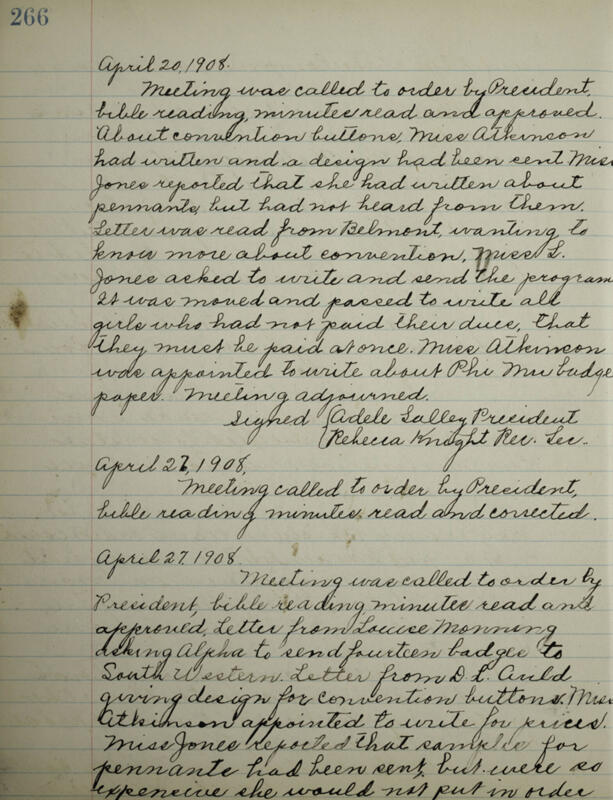 266
April 20, 1908.
Meeting was called to order by President,
bible reading, minutes read and approved.
About convention buttons, Miss Atkinson
had written and a design had been sent Miss
Jones reported that she had written about
pennants, but had not heard from them.
Letter was read from Belmont, wanting to
know more about convention, Miss L.
Jones asked to write and send the program
It was moved and passed to write all
girls who had not paid their dues, that
they must be paid at once. Miss Atkinson
was appointed to write about Phi Mu badge
paper. Meeting adjourned.
Signed { Adele Salley President
{ Rebecca Knight Rec. Sec.
April 27, 1908,
Meeting called to order by President,
bible reading minutes read and corrected.
April 27. 1908
Meeting was called to order by
President, bible reading minutes read and
approved. Letter from Louise Monning
asking Alpha to send fourteen badges to
South Western. Letter from D. L. Auld
giving design for convention buttons. Miss
Atkinson appointed to write for prices.
Miss Jones reported that samples for
pennants had been sent, but were so
expensive she would not put in order